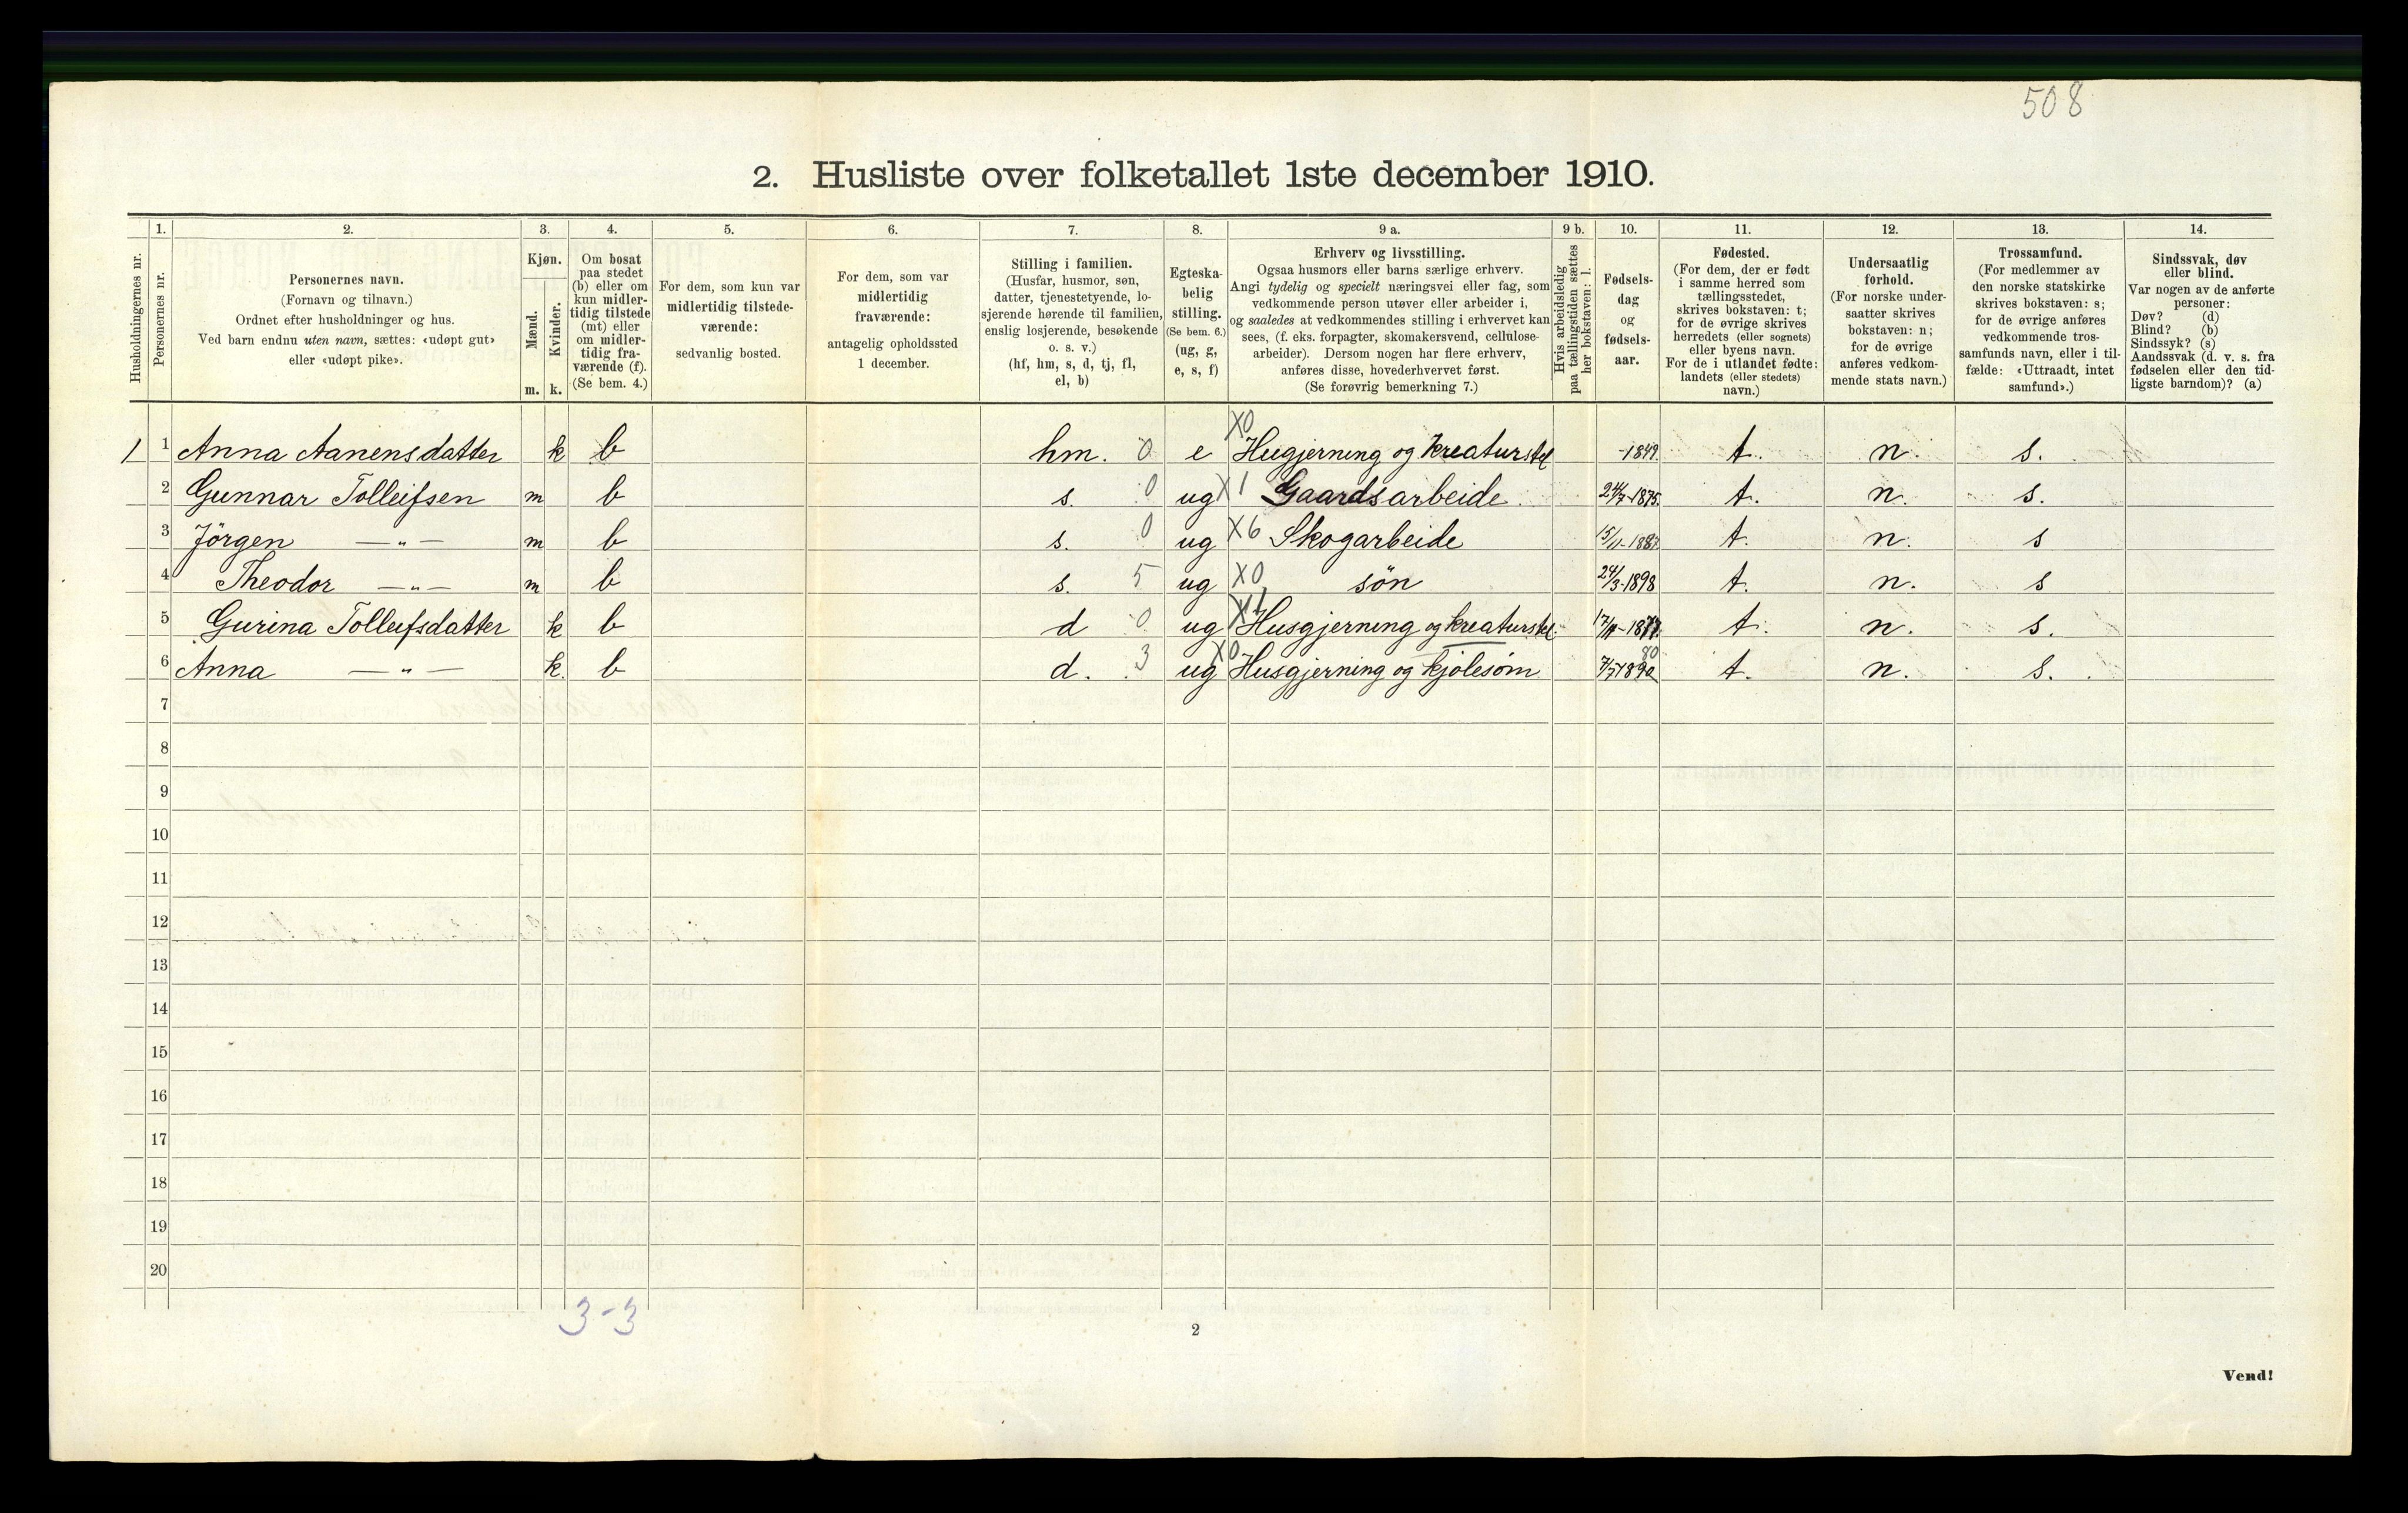 508
2. Husliste over folketallet 1ste december 1910.
Husholdningernes nr.
1.
Personernes nr.
2.
Personernes navn.
(Fornavn og tilnavn.)
Ordnet efter husholdninger og hus.
Ved barn endnu uten navn, sættes: «udøpt gut»
eller «udøpt pike».
3.
Kjøn.
Mænd.
Kvinder.
m. k.
4.
Om bosat
paa stedet
(b) eller om
kun midler-
tidig tilstede
(mt) eller
om midler-
tidig fra-
værende (f).
(Se bem. 4.)
5.
For dem, som kun var
midlertidig tilstede-
værende:
sedvanlig bosted.
6.
For dem, som var
midlertidig
fraværende:
antagelig opholdssted
1 december.
7.
Stilling i familien.
(Husfar, husmor, søn,
datter, tjenestetyende, lo-
sjerende hørende til familien,
enslig losjerende, besøkende
o. s. v.)
(hf, hm, s, d, tj, fl,
el, b)
8.
Egteska-
belig
stilling.
(Se bem. 6.)
(ug, g,
e, s, f)
9 a.
Erhverv og livsstilling.
Ogsaa husmors eller barns særlige erhverv.
Angi tydelig og specielt næringsvei eller fag, som
vedkommende person utøver eller arbeider i,
og saaledes at vedkommendes stilling i erhvervet kan
sees, (f. eks. forpagter, skomakersvend, cellulose-
arbeider). Dersom nogen har flere erhverv,
anføres disse, hovederhvervet først.
(Se forøvrig bemerkning 7.)
9 b.
Hvis arbeidsledig
paa tællingstiden sættes
her bokstaven: l.
10.
Fødsels-
dag
og
fødsels-
aar.
11.
Fødested.
(For dem, der er født
i samme herred som
tællingsstedet,
skrives bokstaven: t;
for de øvrige skrives
herredets (eller sognets)
eller byens navn.
For de i utlandet fødte:
landets (eller stedets)
navn.)
12.
Undersaatlig
forhold.
(For norske under-
saatter skrives
bokstaven: n;
for de øvrige
anføres vedkom-
mende stats navn.)
13.
Trossamfund.
(For medlemmer av
den norske statskirke
skrives bokstaven: s;
for de øvrige anføres
vedkommende tros-
samfunds navn, eller i til-
fælde: «Uttraadt, intet
samfund».)
14.
Sindssvak, døv
eller blind.
Var nogen av de anførte
personer:
Døv? (d)
Blind? (b)
Sindssyk? (s)
Aandssvak (d. v. s. fra
fødselen eller den tid-
ligste barndom)? (a)
1 1 Anna Aanensdatter k b hm. 0 e X0 Hugjerning og kreaturstel -1849. t. n. s.
2 Gunnar Tolleifsen m b s. 0 ug X1 Gaardsarbeide. 24/7-1875. t. n. s.
3 Jörgen —"— m b s. 0 ug X6 Skogarbeide t. n. s
4 Theodor —"— m b s. 5 ug X0 sön 24/3-1898 t. n. s
5 Gurina Tolleifsdatter k b d 0 ug Husgjerning og kreaturstel. t. n. s.
6 Anna —"— k. b d. 3 ug X0 Husgjerning og kjolesöm t. n. s.
7
8
9
10
11
12
13
14
15
16
17
18
19
20
3-3
2
Vend!